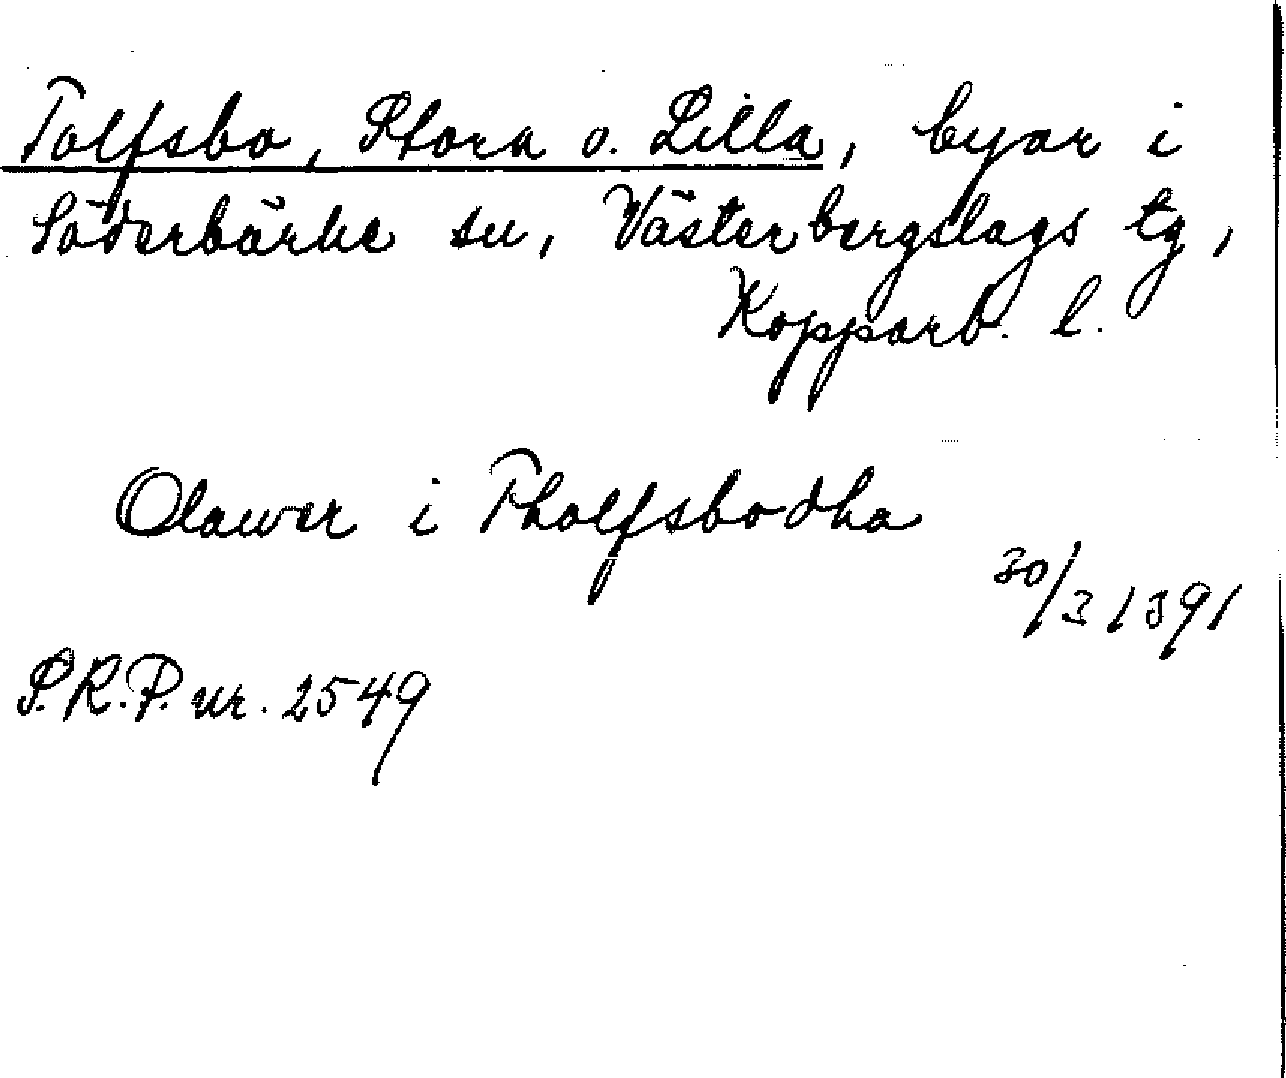 Tolfsbo, Stora o. Lilla, byar i
Söderbärke sn, Västerbergslags tg,
Kopparb. l.
Olawer i Tholfsbodha
30/3 1391
S.R.P. nr. 2549